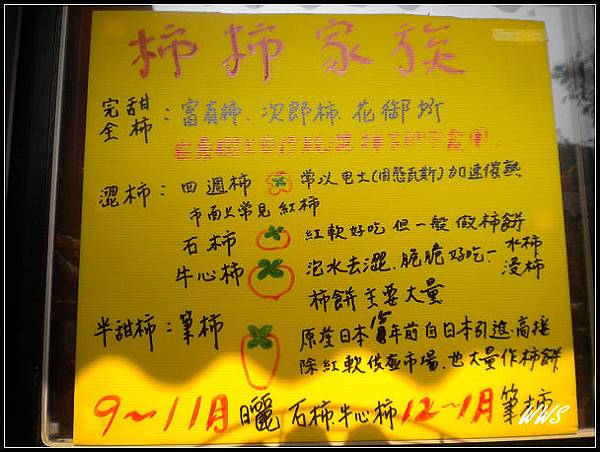 柿柿家族
完全甜柿：富有柿、次郎柿、花御所
在果樹上自行脫澀 摘下即可食用
澀柿：四週柿 常以電土(固態瓦斯)加速催熟
市面上常見紅柿
石柿 紅軟好吃 但一般做柿餅
牛心柿 泡水去澀、脆脆好吃─水柿 浸柿
柿餅主要大量
半甜柿：筆柿 原產日本 年前自日本引進、高接
除紅軟後並市場、也大量作柿餅
9～11月曬 石柿、牛心柿 12～1月筆柿
WWS